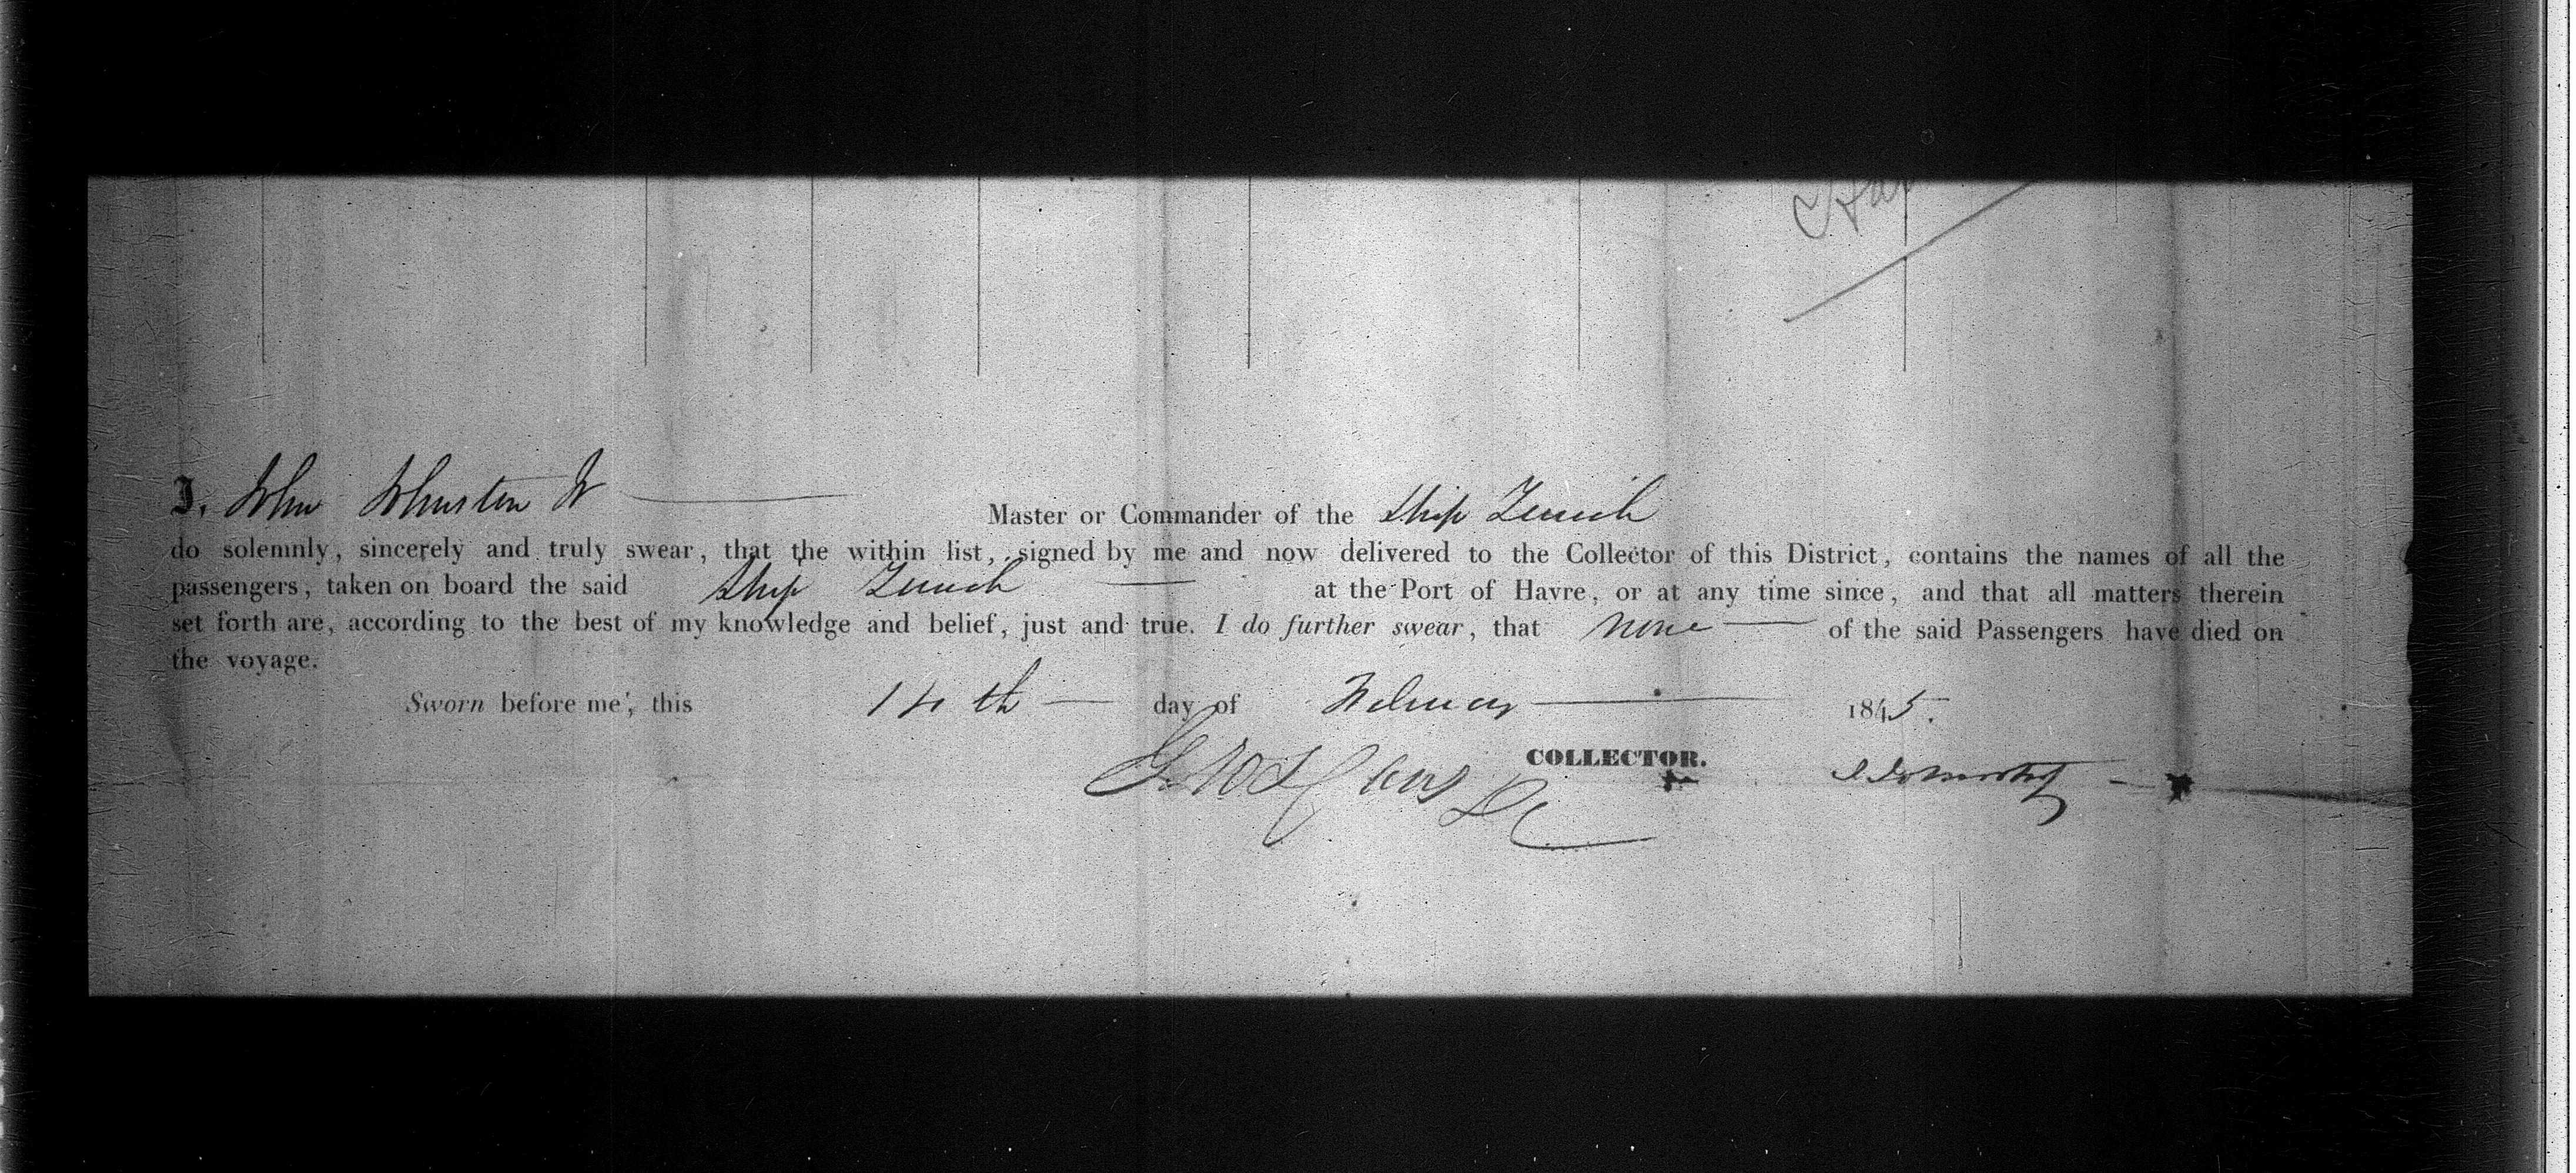 Ha
I, John Johnston Jr Master or Commander of the Ship Zurich
do solemnly, sincerely and truly swear, that the within list, signed by me and now delivered to the Collector of this District, contains the names of all the
passengers, taken on board the said Ship Zurich at the Port of Havre, or at any time since, and that all matters therein
set forth are, according to the best of my knowledge and belief, just and true. I do further swear, that none of the said Passengers have died on
the voyage.
Sworn before me, this 14th day of February 1845.
COLLECTOR.